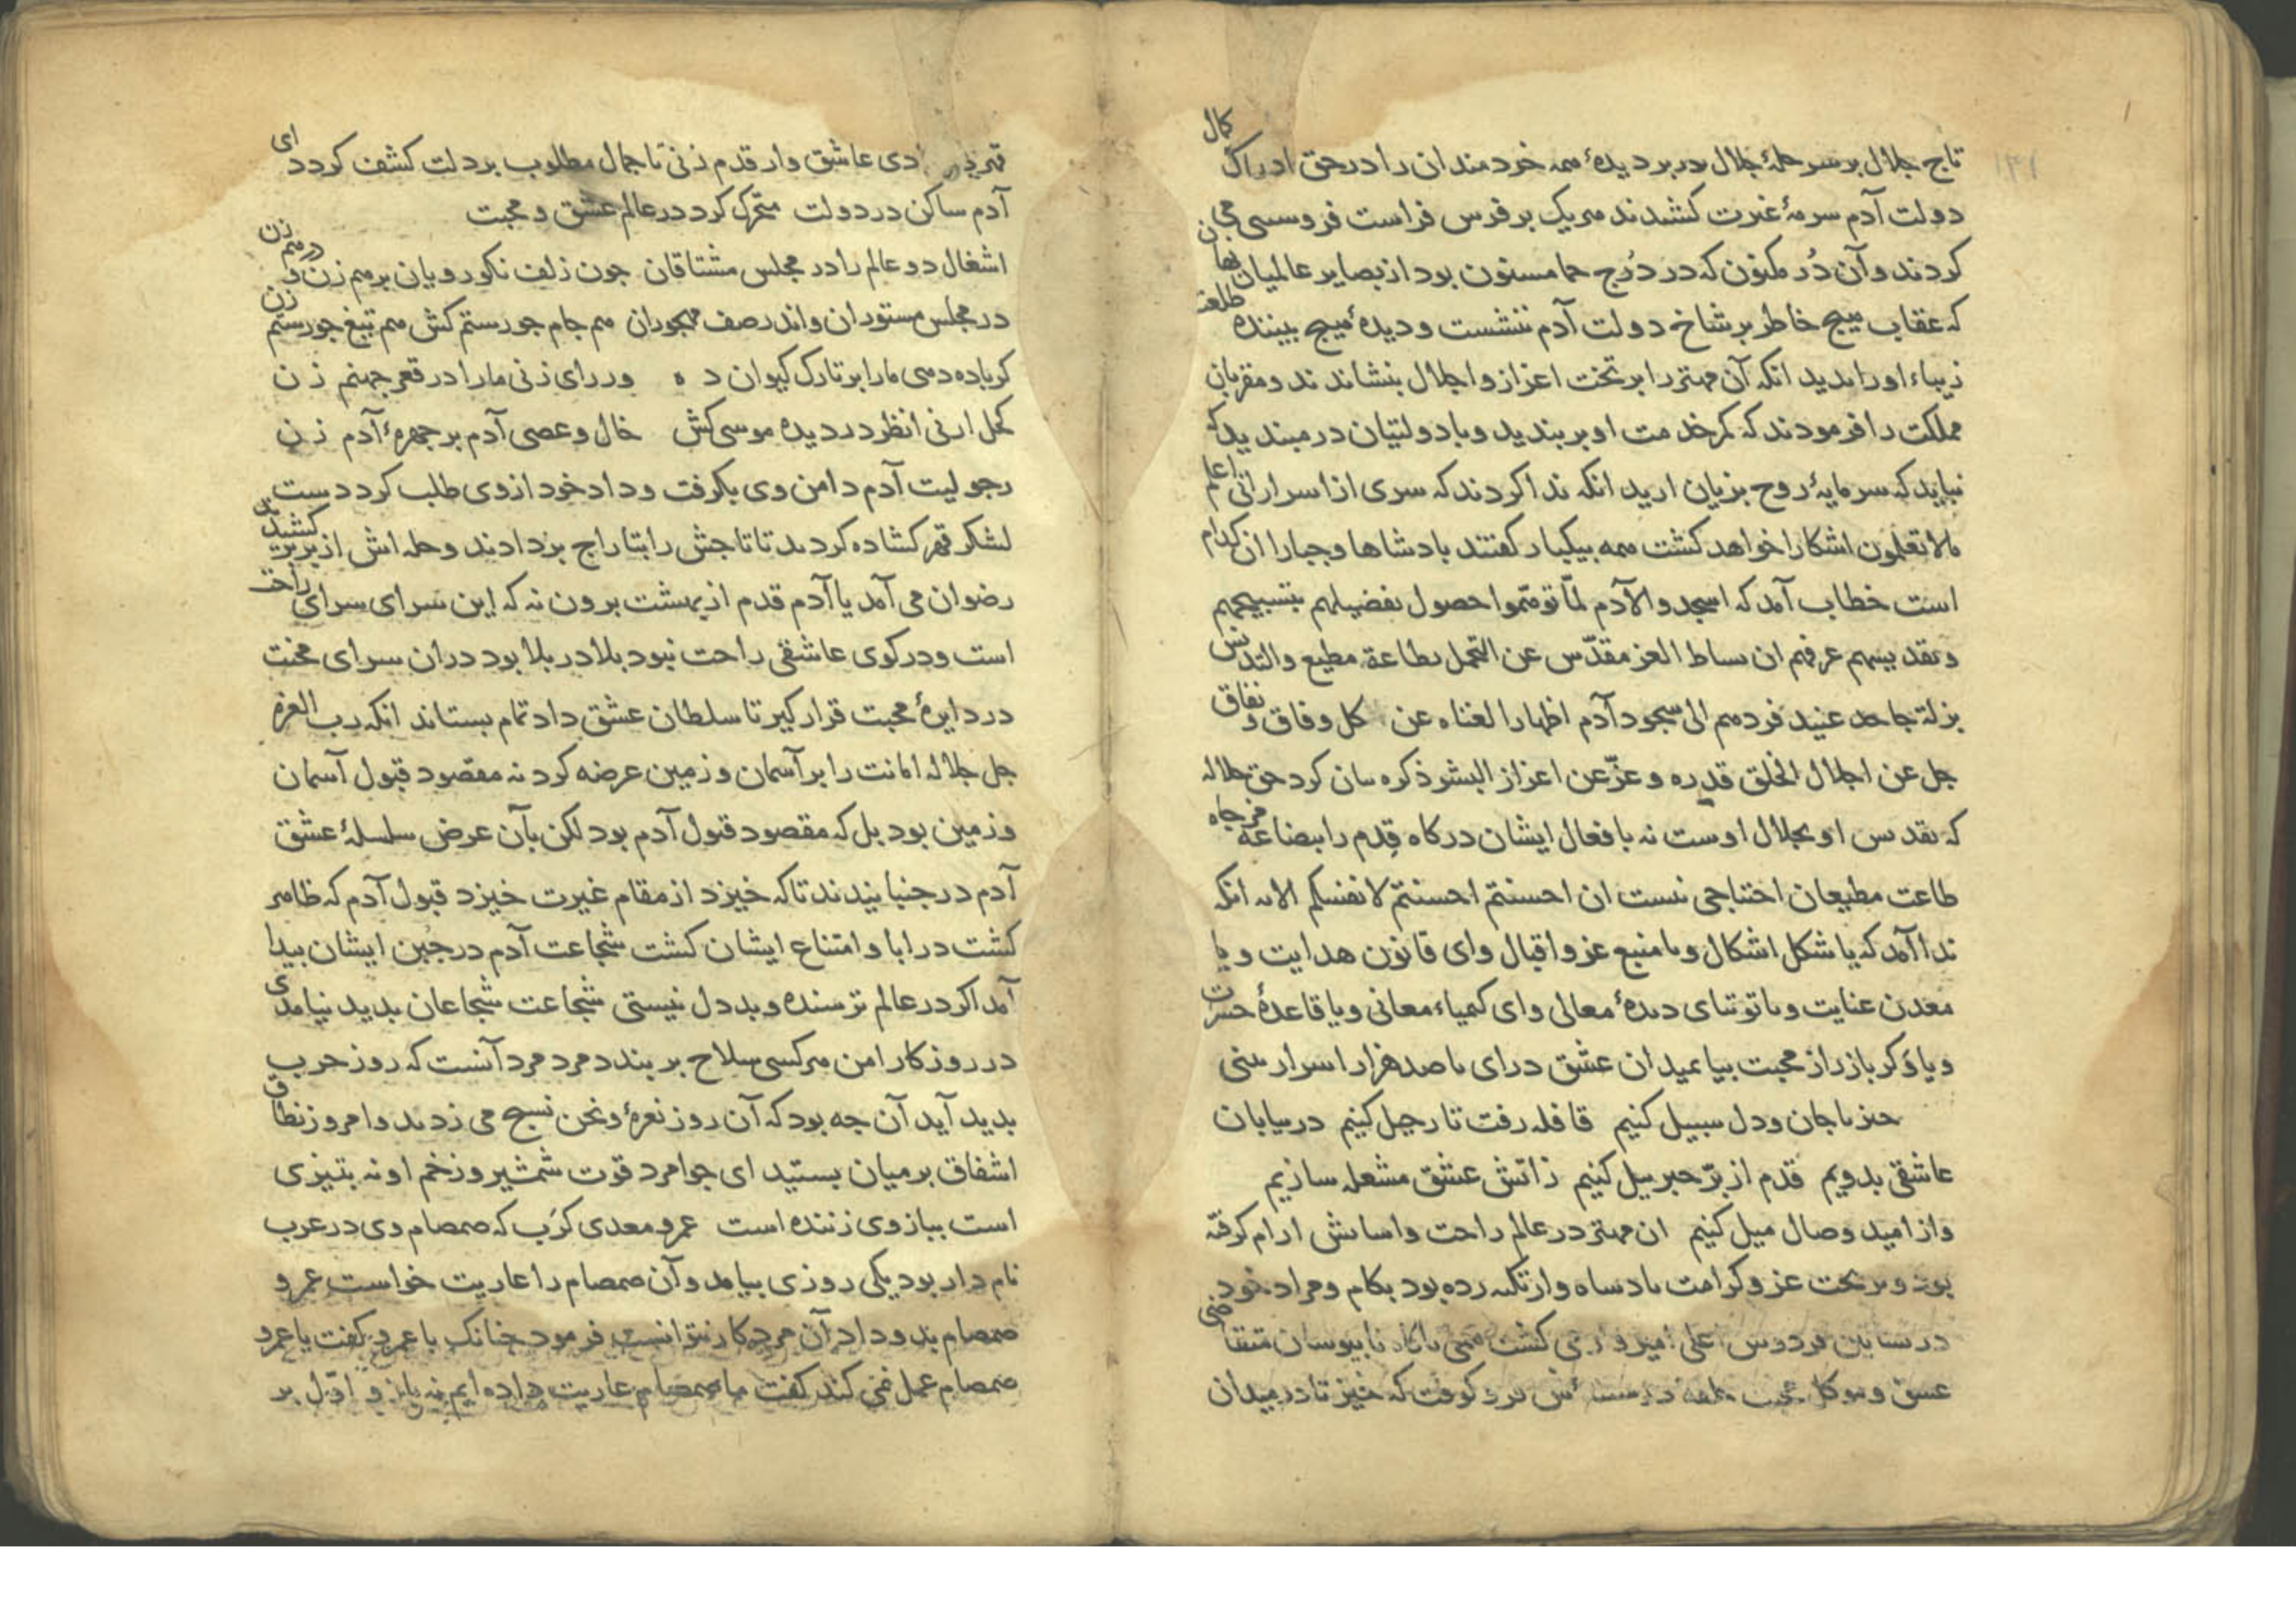 تاج جلال بر سر حلهٔ جلال در بر دیدهٔ همه خردمندان را در حق ادراک کمال
دولت آدم سرمهٔ غیرت کشیدند هر یک بر فرس فراست فروسیی می
کردند و آن دُر مکنون که در دُرج حما مسنون بود از بصایر عالمیان نهان
که عقاب هیچ خاطر بر شاخ دولت آدم ننشست و دیدهٔ هیچ بیننده طلعت
زیباء او را ندید انکه آن مهتر را بر تخت اعزاز و اجلال بنشاندند و مقربان
مملکت را فرمودند که کمر خدمت او بر بندید و با دولتیان در مبندید که
نباید که سرمایهٔ روح بزیان ارید انکه ندا کردند که سری از اسرار انی اعلم
مالا تعلمون اشکارا خواهد کشت همه بیکبار کفتند بادشاها و جبارا ان کدام
است خطاب آمد که اسجدوا لآدم لمّا توهّموا حصول تفضیلهم بتسبیحهم
و تقدیسهم عرفهم ان بساط العز مقدّس عن التجمل بطاعة مطیع و التدنس
بزلة جاحد عنید فردهم الی سجود آدم اظهارا لغناه عن کل وفاق و نفاق
جل عن اجلال الخلق قدره و عزّ عن اعزاز البشر ذکره بیان کرد حق جلاله
که تقدس او بجلال اوست نه بافعال ایشان درکاه قِدم را ببضاعة مزجاه
طاعت مطیعان احتیاجی نیست ان احسنتم احسنتم لانفسکم الایه انکه
ندا آمد که یا شکل اشکال و یا منبع عز و اقبال و ای قانون هدایت و یا
معدن عنایت و یا توتیای دیدهٔ معالی و ای کمیاء معانی و یا قاعدهٔ حسرت
و یا وکر باز راز محبت بیا بمیدان عشق در ای با صد هزار اسرار سنی
خیز تا جان و دل سبیل کنیم قافله رفت تا رحیل کنیم در بیابان
عاشقی بدویم قدم از پرّ جبرییل کنیم ز اتش عشق مشعله سازیم
و از امید وصال میل کنیم ان مهتر در عالم راحت و اسایش ارام کرفته
بود و بر تخت عز و کرامت بادشاه وار تکیه زده بود بکام و مراد خود
در بساتین فردوس اعلی امیر وار می کشت همی ناکاه نابیوسان متقاضی
عشق و موکل محبت حلقهٔ در کوفت که خیز تا در میدان
قهر دی عاشق وار قدم زنی تا جمال مطلوب بر دلت کشف کردد ای
آدم ساکن در دولت متحرک کرد در عالم عشق و محبت
اشغال دو عالم را در مجلس مشتاقان جون زلف نکورویان بر هم زن و در هم زن
در مجلس مستوران و اندر صف مهجوران هم جام جو رستم کش هم تیغ جو رستم زن
کر باده دهی ما را بر تارک کیوان ده ور رای زنی ما را در قعر جهنم زن
کحل ارنی انظر در دیده موسی کش خال و عصی آدم بر جهرهٔ آدم زن
رجولیت آدم دامن وی بکرفت و داد خود از وی طلب کرد دست
لشکر قهر کشاده کردند تا تاجش را بتاراج بر دادند و حله اش از بر بر کشیدند
رضوان می آمد یا آدم قدم از بهشت برون نه که این سرای سرای راحت
است و در کوی عاشقی راحت نبود بلا در بلا بود در ان سرای محنت
در دایرهٔ محبت قرار کیر تا سلطان عشق داد تمام بستاند انکه رب العزه
جل جلاله امانت را بر آسمان و زمین عرضه کرد نه مقصود قبول آسمان
و زمین بود بل که مقصود قبول آدم بود لکن بآن عرض سلسلهٔ عشق
آدم در جنبانیدند تا که خیزد از مقام غیرت خیزد قبول آدم که ظاهر
کشت در ابا و امتناع ایشان کشت شجاعت آدم در جُبن ایشان بیدا
آمد اکر در عالم ترسنده و بد دل نیستی شجاعت شجاعان بدید نیامدی
در روزکار امن هر کسی سلاح بر بندد مرد مرد آنست که روز حرب
بدید آید آن جه بود که آن روز نعرهٔ و نحن نسبح می زدند و امروز نطاق
اشفاق بر میان بستید ای جوامرد قوت شمشیر و زخم او نه بتیزی
است ببازوی زننده است عمرو معدی کرَب که صمصام وی در عرب
نام دار بود یکی روزی بیامد و آن صمصام را عاریت خواست عمرو
صمصام بدو داد آن مرد کار نتوانست فرمود جنانک با عمرو کفت یا عمرو
صمصام عمل نمی کند کفت ما صمصام عاریت داده ایم نه بازو اوّل بر